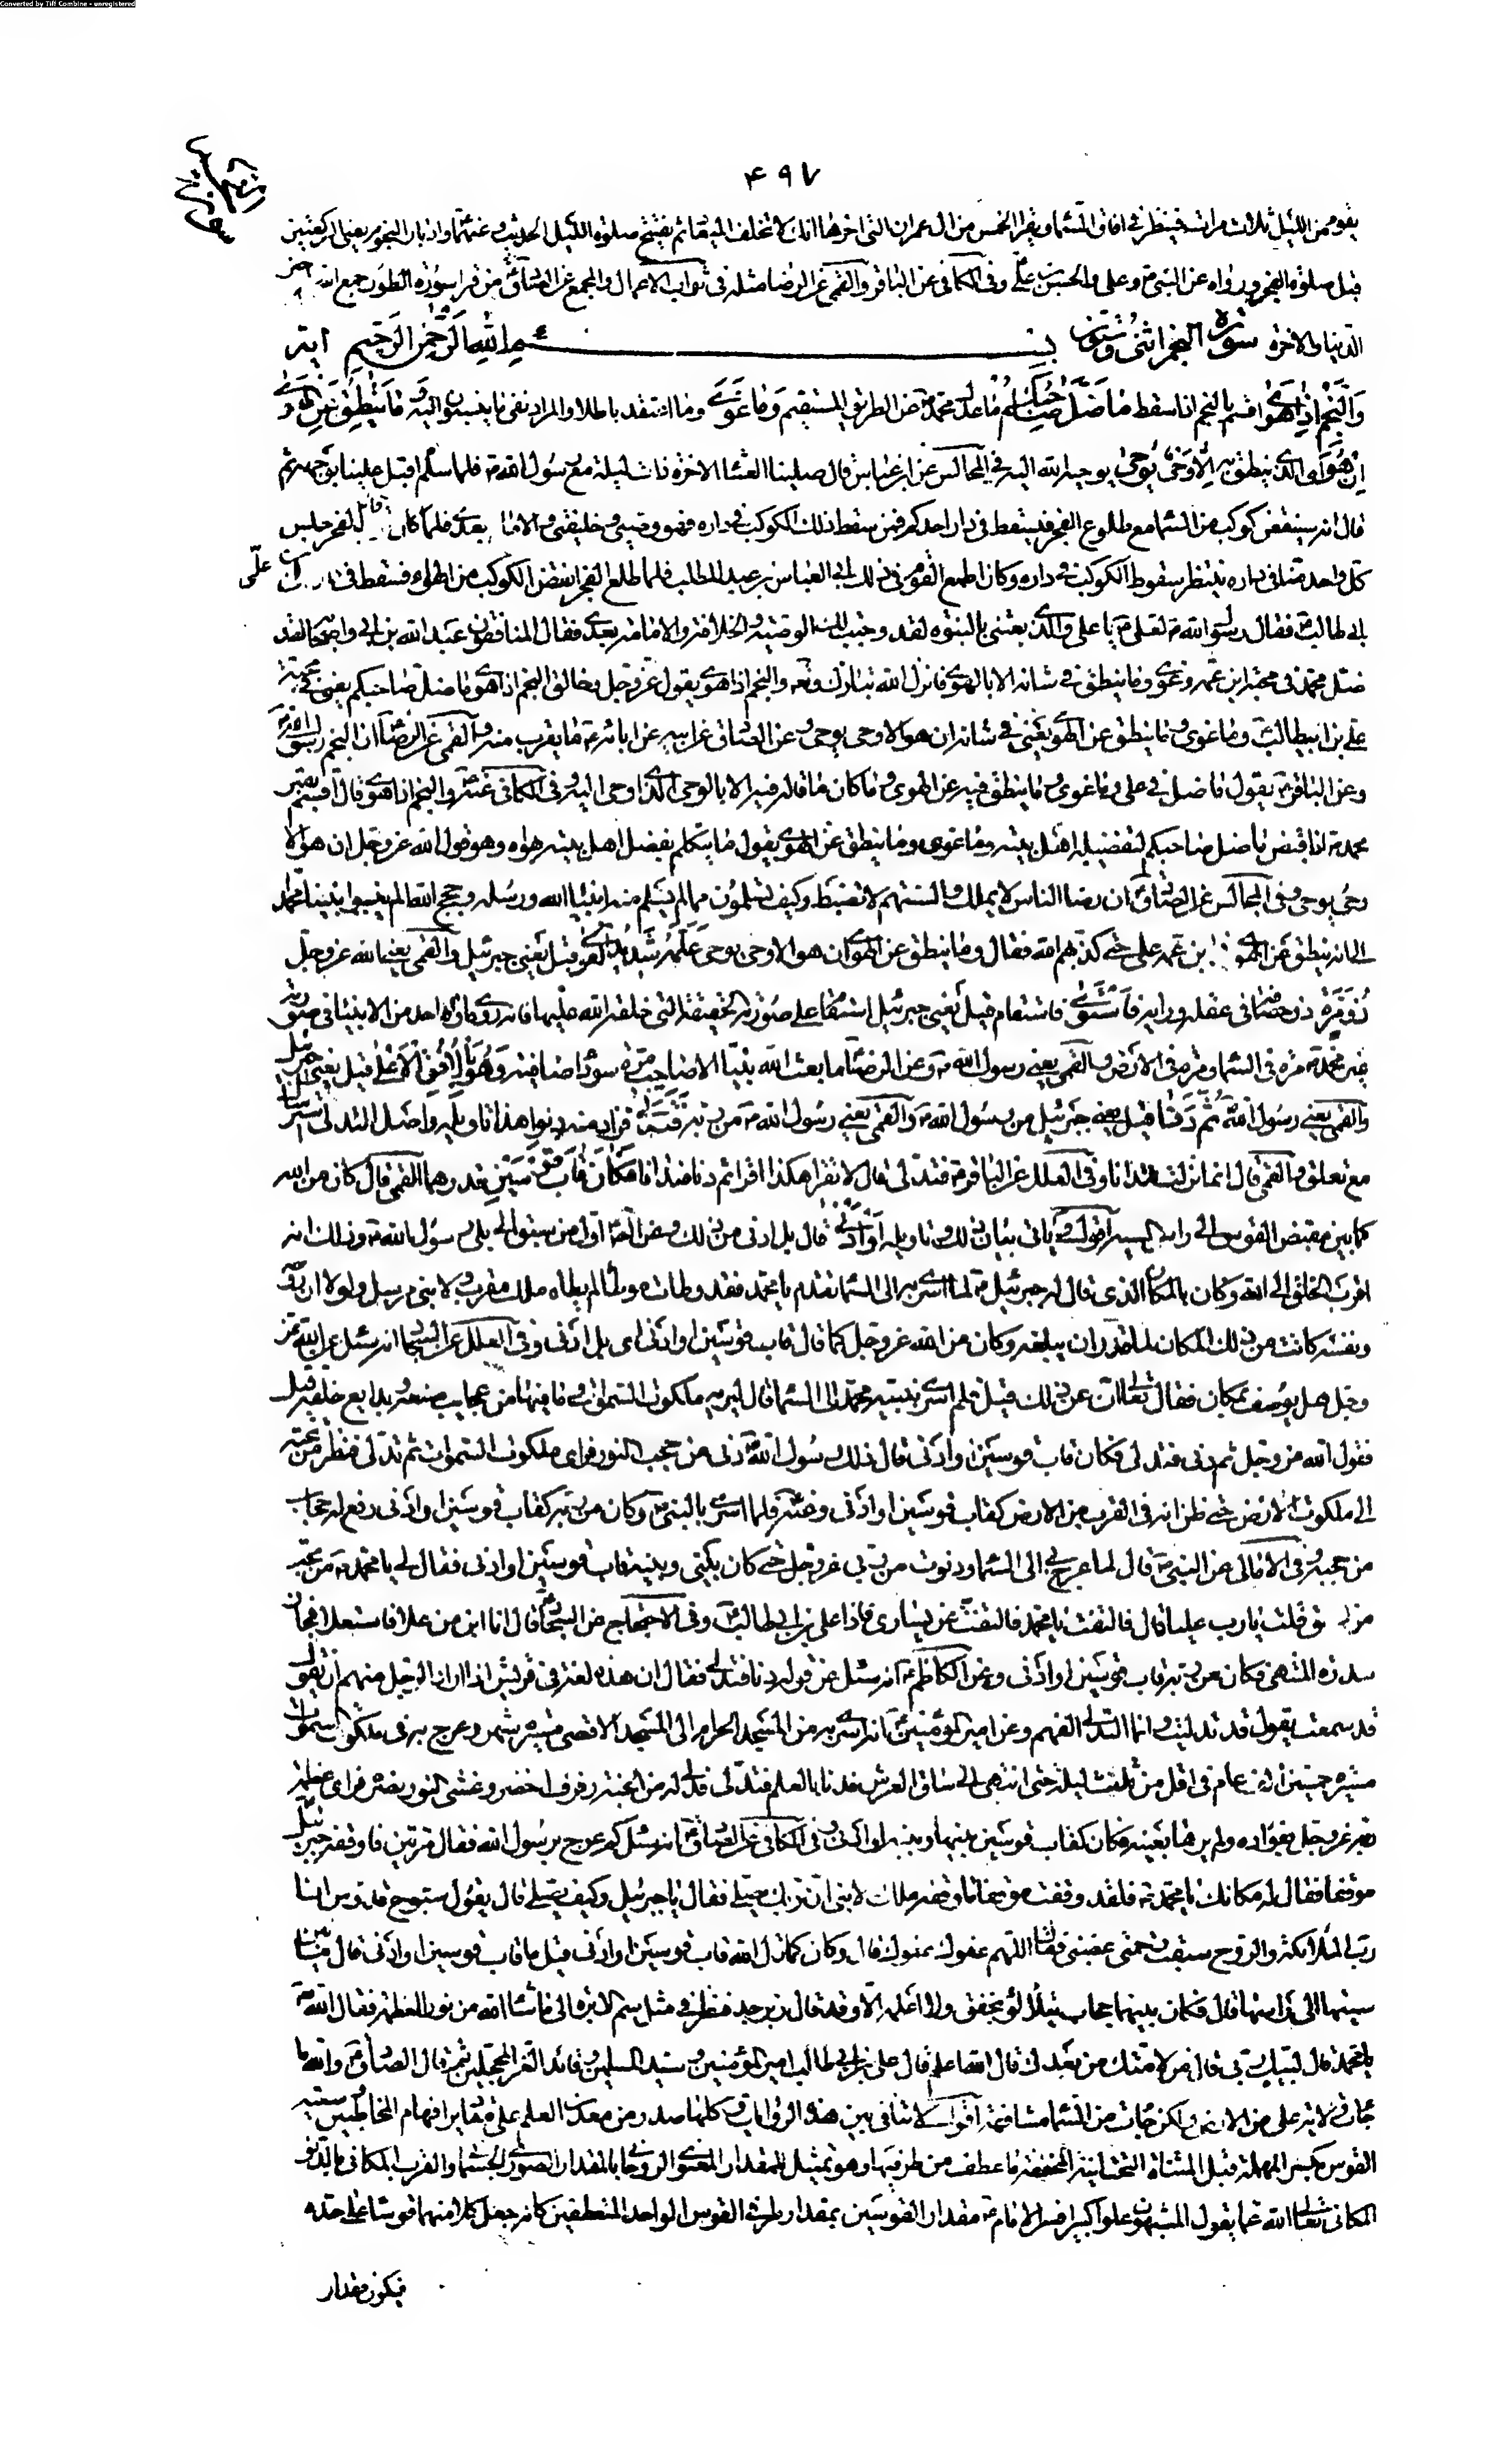 Converted by Tiff Combine - unregistered
۴۹۷
يقوم من الليل ثلاث مرات فينظر في افاق السماء ويقرا الخمس من ال عمران التي اخرها انك لا تخلف الميعاد ثم يفتتح صلوة الليل الحديث وعنهما وادبار النجوم يعني الركعتين
قبل صلوة الفجر ورواه عن النبي وعلي والحسن وفي الكافي عن الباقر والقمي عن الرضا مثله في ثواب الاعمال والمجمع عن الصادق من قرا سورة الطور جمع الله خير
الدنيا والاخرة سورة النجم اثنتي وستون اية بسم الله الرحمن الرحيم
والنجم اذا هوى اقسم بالنجم اذا سقط ما ضل صاحبكم ما عدل محمد عن الطريق المستقيم وما غوى وما اعتقد باطلا والمراد نفي ما ينسبون اليه وما ينطق عن الهوى
ان هو اي الذي ينطق به الا وحي يوحى يوحيه الله اليه في المجالس عن ابن عباس قال صلينا العشاء الاخرة ذات ليلة مع رسول الله فلما سلم اقبل علينا بوجهه ثم
قال انه سينقض كوكب من السماء مع طلوع الفجر فيسقط في دار احدكم فمن سقط ذلك الكوكب في داره فهو وصيي وخليفتي والامام بعدي فلما كان قرب الفجر جلس
كل واحد منا في داره ينتظر سقوط الكوكب في داره وكان اطمع القوم في ذلك ابي العباس بن عبد المطلب فلما طلع الفجر انقض الكوكب من الهواء فسقط في دار علي
بن ابي طالب فقال رسول الله لعلي يا علي والذي بعثني بالنبوة لقد وجبت لك الوصية والخلافة والامامة بعدي فقال المنافقون عبد الله بن ابي واصحابه لقد
ضل محمد في محبة ابن عمه وغوى وما ينطق في شانه الا بالهوى فانزل الله تبارك وتعالى والنجم اذا هوى يقول عز وجل وخالق النجم اذا هوى ما ضل صاحبكم يعني في محبة
علي بن ابيطالب وما غوى وما ينطق عن الهوى يعني في شانه ان هو الا وحي يوحى وعن الصادق عن ابيه عن ابائه ما يقرب منه والقمي عن الرضا ان النجم رسول الله
وعن الباقر يقول ما ضل في علي وما غوى وما ينطق فيه عن الهوى وما كان ما قاله فيه الا بالوحي الذي اوحي اليه وفي الكافي عنه والنجم اذا هوى قال اقسم بقبر
محمد اذا قبض ما ضل صاحبكم لتفضيله اهل بيته وما غوى وما ينطق عن الهوى يقول ما يتكلم بفضل اهل بيته بهواه وهو قول الله عز وجل ان هو الا
وحي يوحى وفي المجالس عن الصادق ان رضا الناس لا يملك والسنتهم لا تضبط وكيف تسلمون مما لم يسلم منه انبياء الله ورسله وحجج الله الم ينسبوا نبينا محمد
الى انه ينطق عن الهوى في ابن عمه علي حتى كذبهم الله فقال وما ينطق عن الهوى ان هو الا وحي يوحى علمه شديد القوى قيل يعني جبرئيل والقمي يعني الله عز وجل
ذو مرة ذو حصافة في عقله ورايه فاستوى فاستقام قيل يعني جبرئيل استقام على صورته الحقيقية التي خلقه الله عليها فانه روي ما راه احد من الانبياء في صورته
غير محمد مرة في السماء ومرة في الارض والقمي يعني رسول الله وعن الرضا ما بعث الله نبيا الا صاحب مرة سوداء صافية وهو بالافق الاعلى قيل يعني جبرئيل
والقمي يعني رسول الله ثم دنا قيل يعني جبرئيل من رسول الله والقمي يعني رسول الله من ربه فتدلى فزاد منه دنوا هذا تاويله واصل التدلي استرسال
مع تعلق والقمي قال انما نزلت فتدانا وفي العلل عن الباقر فتدلى قال لا تقرا هكذا اقرا ثم دنا فتدانا فكان قاب قوسين قدرهما القمي قال كان من الله
كما بين مقبض القوس الى راس السية اقول وياتي بيان ذلك وتاويله او ادنى قال بل ادنى من ذلك وعن الصادق اول من سبق الى بلى رسول الله وذلك انه
اقرب الخلق الى الله وكان بالمكان الذي قال له جبرئيل لما اسري به الى السماء تقدم يا محمد فقد وطات موطئا لم يطاه ملك مقرب ولا نبي مرسل ولولا ان روحه
ونفسه كانت من ذلك المكان لما قدر ان يبلغه وكان من الله عز وجل كما قال قاب قوسين او ادنى اي بل ادنى وفي العلل عن السجاد انه سئل عن الله عز
وجل هل يوصف بمكان فقال تعالى الله عن ذلك قيل فلم اسرى بنبيه محمد الى السماء قال ليريه ملكوت السموات وما فيها من عجايب صنعه وبدايع خلقه قيل
فقول الله عز وجل ثم دنى فتدلى فكان قاب قوسين او ادنى قال ذلك رسول الله دنى من حجب النور فراى ملكوت السموات ثم تدلى فنظر من تحته
الى ملكوت الارض حتى ظن انه في القرب من الارض كقاب قوسين او ادنى وعنه فلما اسري بالنبي وكان من ربه كقاب قوسين او ادنى رفع له حجاب
من حجبه وفي الامالي عن النبي قال لما عرج بي الى السماء ودنوت من ربي عز وجل حتى كان بيني وبينه قاب قوسين او ادنى فقال لي يا محمد من تحب
من الخلق قلت يا رب عليا قال فالتفت يا محمد فالتفت عن يساري فاذا علي بن ابي طالب وفي الاحتجاج عن السجاد قال انا ابن من علا فاستعلا فجاز
سدرة المنتهى فكان من ربه قاب قوسين او ادنى وعن الكاظم انه سئل عن قوله دنا فتدلى فقال ان هذه لغة في قريش اذا اراد الرجل منهم ان يقول
قد سمعت يقول قد تدليت وانما التدلي الفهم وعن امير المؤمنين انه اسري به من المسجد الحرام الى المسجد الاقصى مسيرة شهر وعرج به في ملكوت السموات
مسيرة خمسين الف عام في اقل من ثلث ليلة حتى انتهى الى ساق العرش فدنا بالعلم فتدلى فدلي له من الجنة رفرف اخضر وغشى النور بصره فراى عظمة
ربه عز وجل بفؤاده ولم يرها بعينه فكان كقاب قوسين بينها وبينه او ادنى وفي الكافي عن الصادق انه سئل كم عرج برسول الله فقال مرتين فاوقفه جبرئيل
موقفا فقال له مكانك يا محمد فلقد وقفت موقفا ما وقفه ملك ولا نبي ان ربك يصلي فقال يا جبرئيل وكيف يصلي قال يقول سبوح قدوس انا
رب الملائكة والروح سبقت رحمتي غضبي فقال اللهم عفوك عفوك قال وكان كما قال الله قاب قوسين او ادنى قيل ما قاب قوسين او ادنى قال ما بين
سيتها الى راسها قال فكان بينهما حجاب يتلالؤ بخفق ولا اعلمه الا وقد قال زبرجد فنظر في مثل سم الابرة الى ما شاء الله من نور العظمة فقال الله
يا محمد قال لبيك ربي قال من لامتك من بعدك قال الله اعلم قال علي بن ابي طالب امير المؤمنين وسيد المسلمين وقائد الغر المحجلين ثم قال الصادق والله ما
جاءت ولاية علي من الارض ولكن جاءت من السماء مشافهة اقول لا تنافي بين هذه الروايات وكلها صدر من معدن العلم على مقادير افهام المخاطبين وسية
القوس بكسر المهملة قبل المثناة التحتانية المخففة ما عطف من طرفيها وهو تمثيل للمقدار المعنوي الروحاني بالمقدار الصوري الجسماني والقرب المكاني بالدنو
المكاني تعالى الله عما يقول المشبهون علوا كبيرا فسر الامام مقدار القوسين بمقدار طرفي القوس الواحد المنعطفين كانه جعل كلا منهما قوسا على حدة
فيكون مقدار